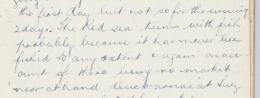 the first day but not so for the evening
2 days. The Red Sea teems with fish
probably because it has never been
fished to any extent & again on acc-
ount of there being no market
near at hand. Our arrival at Suez